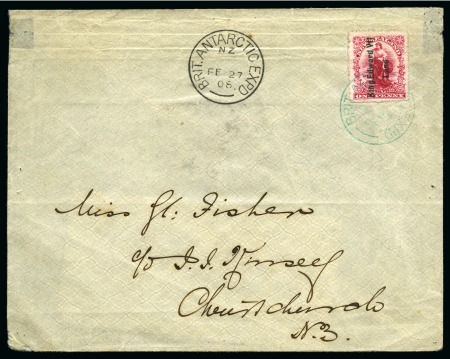 BRIT. ANTARCTIC EXPD
NZ
FE 27
08.
King Edward VII
Land
ONE PENNY
BRIT
Miss Gl: Fisher
c/o J. J. Kinsey
Christchurch
N.Z.